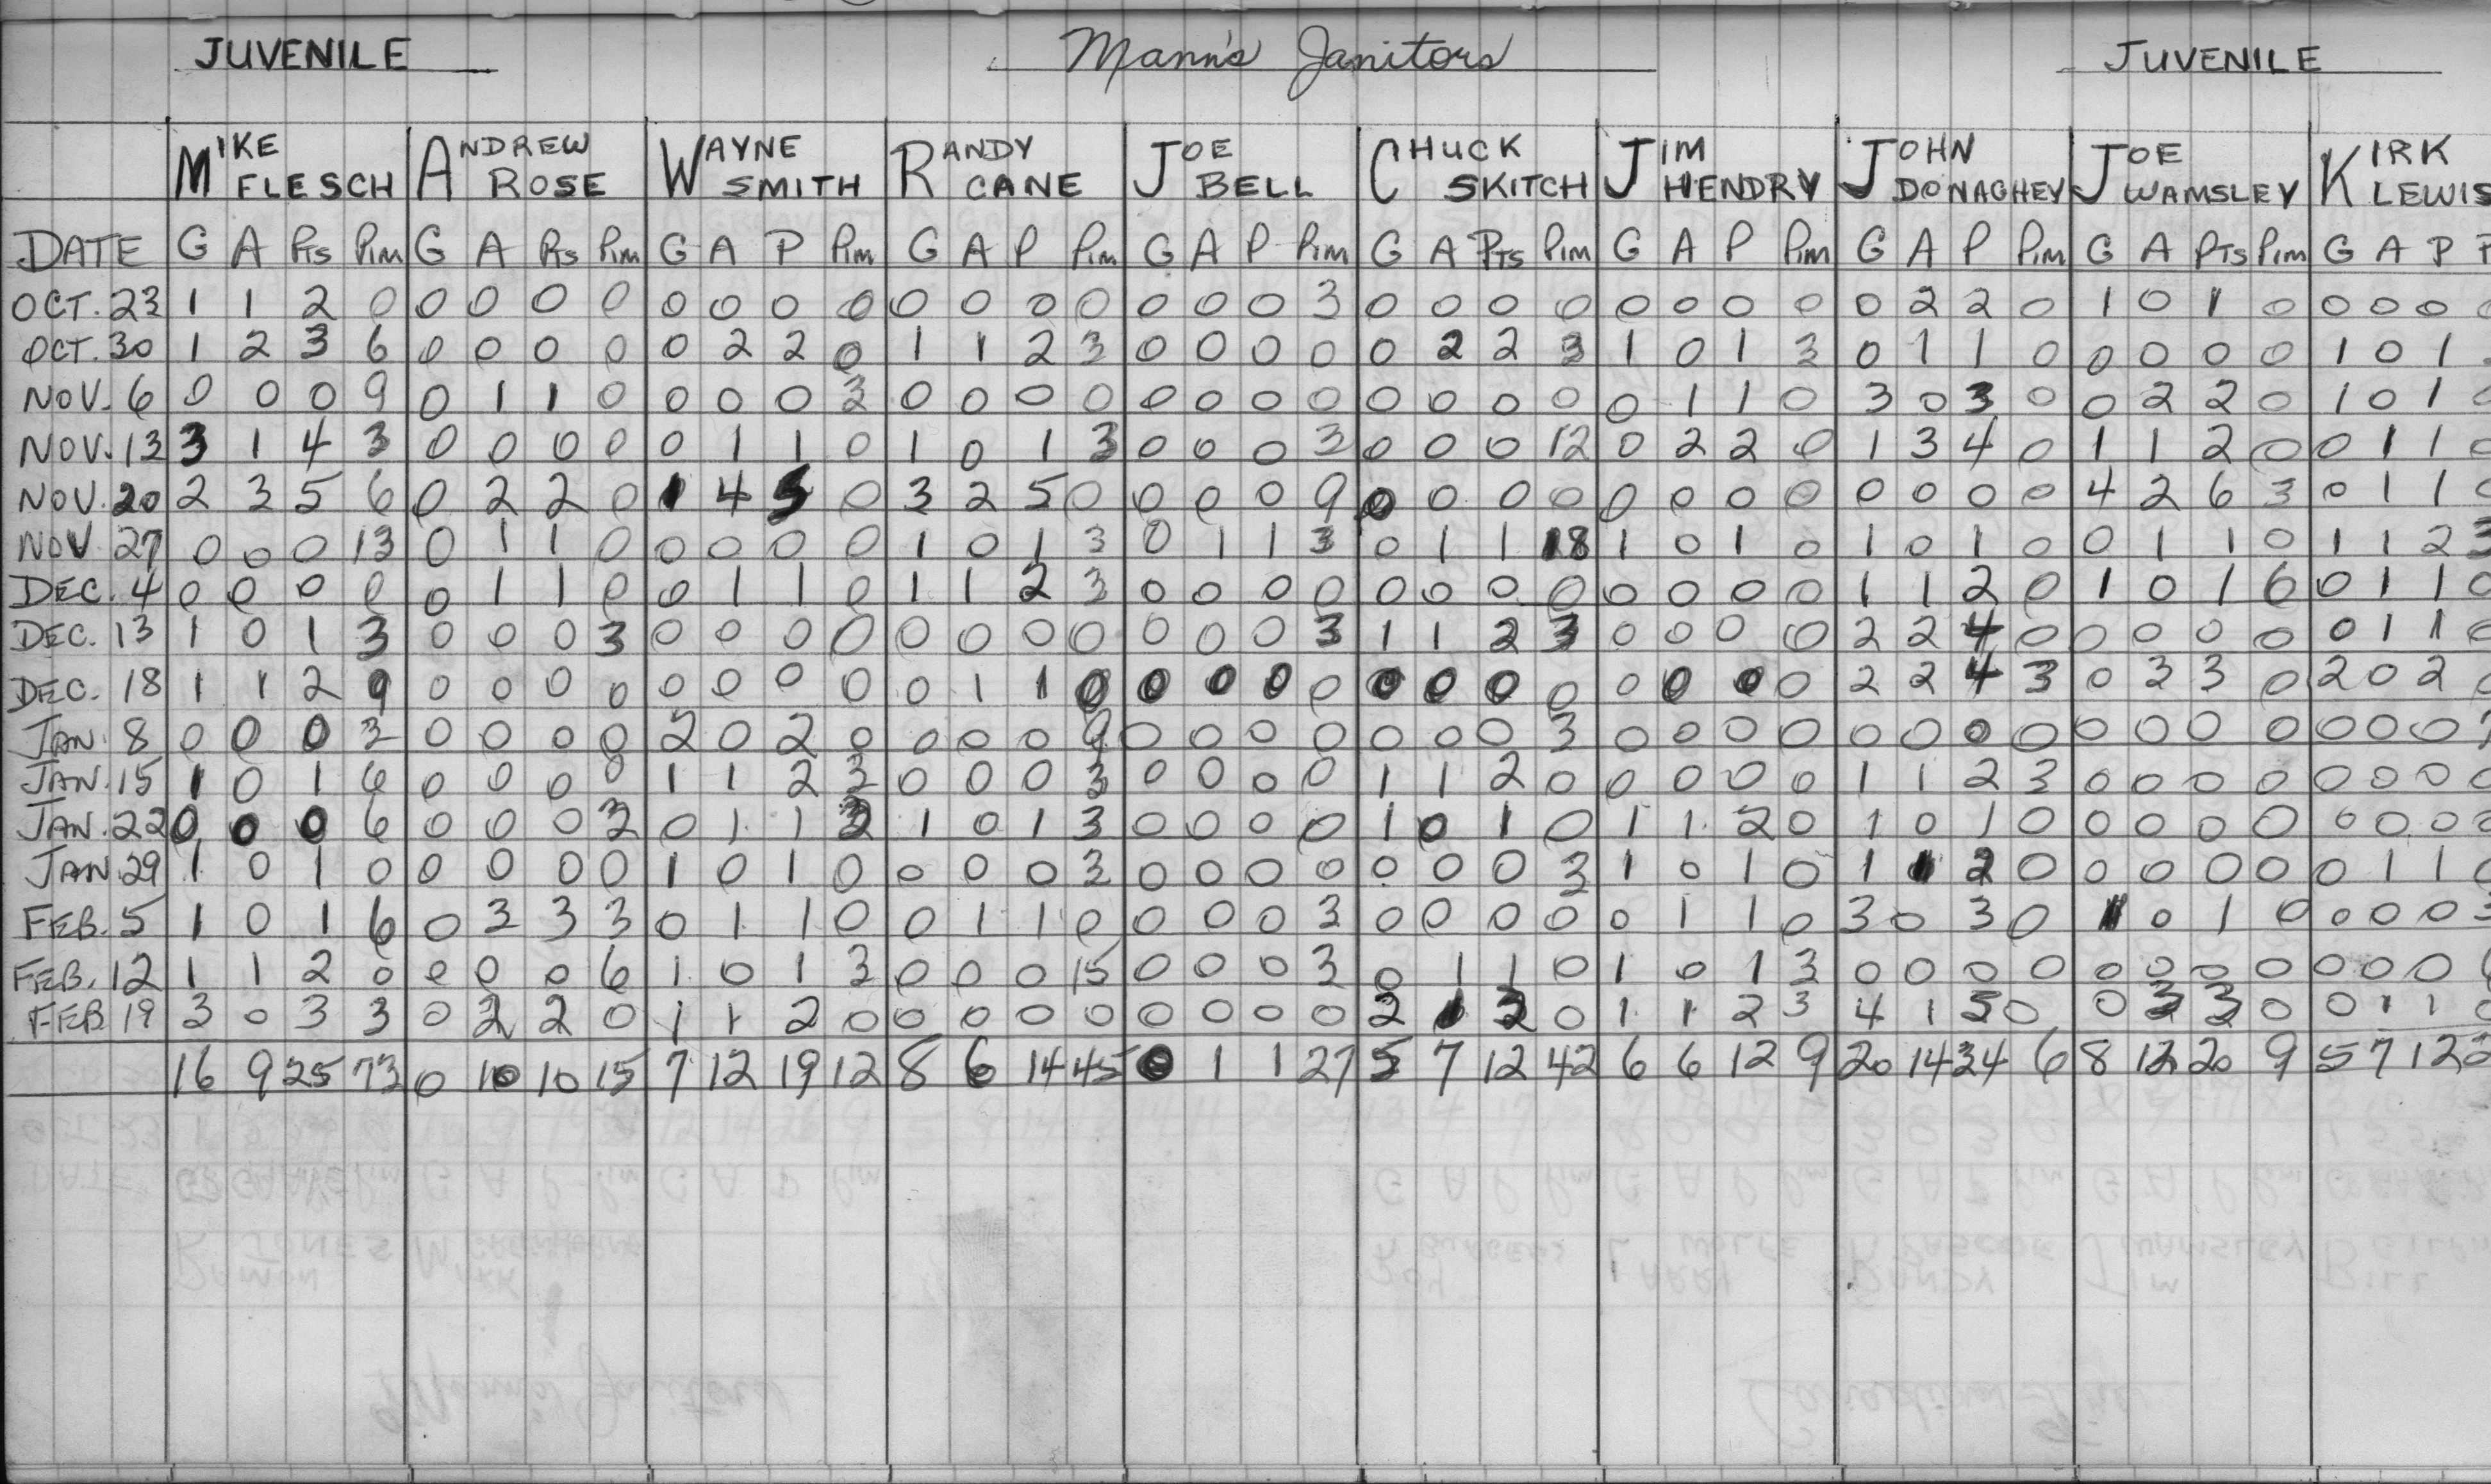 JUVENILE Mann's Janitors JUVENILE
MIKE ANDREW WAYNE RANDY JOE CHUCK JIM JOHN JOE KIRK
FLESCH ROSE SMITH CANE BELL SKITCH HENDRY DONAGHEY WAMSLEY LEWIS
DATE G A Pts Pim G A Pts Pim G A P Pim G A P Pim G A P Pim G A PTS Pim G A P Pim G A P Pim G A PTS Pim G A P
OCT. 23 1 1 2 0 0 0 0 0 0 0 0 0 0 0 0 0 0 0 0 3 0 0 0 0 0 0 0 0 0 2 2 0 1 0 1 0 0 0 0
OCT. 30 1 2 3 6 0 0 0 0 0 2 2 0 1 1 2 3 0 0 0 0 0 2 2 3 1 0 1 3 0 1 1 0 0 0 0 0 1 0 1
NOV. 6 0 0 0 9 0 1 1 0 0 0 0 3 0 0 0 0 0 0 0 0 0 0 0 0 0 1 1 0 3 0 3 0 0 2 2 0 1 0 1
NOV. 13 3 1 4 3 0 0 0 0 0 1 1 0 1 0 1 3 0 0 0 3 0 0 0 12 0 2 2 0 1 3 4 0 1 1 2 0 0 1 1
NOV. 20 2 3 5 6 0 2 2 0 1 4 5 0 3 2 5 0 0 0 0 9 0 0 0 0 0 0 0 0 0 0 0 0 4 2 6 3 0 1 1
NOV. 27 0 0 0 13 0 1 1 0 0 0 0 0 1 0 1 3 0 1 1 3 0 1 1 18 1 0 1 0 1 0 1 0 0 1 1 0 1 1 2 3
DEC. 4 0 0 0 0 0 1 1 0 0 1 1 0 1 1 2 3 0 0 0 0 0 0 0 0 0 0 0 0 1 1 2 0 1 0 1 6 0 1 1
DEC. 13 1 0 1 3 0 0 0 3 0 0 0 0 0 0 0 0 0 0 0 3 1 1 2 3 0 0 0 0 2 2 4 0 0 0 0 0 0 1 1
DEC. 18 1 1 2 9 0 0 0 0 0 0 0 0 0 1 1 0 0 0 0 0 0 0 0 0 0 0 0 0 2 2 4 3 0 3 3 0 2 0 2
JAN. 8 0 0 0 3 0 0 0 0 2 0 2 0 0 0 0 9 0 0 0 0 0 0 0 3 0 0 0 0 0 0 0 0 0 0 0 0 0 0 0
JAN. 15 1 0 1 6 0 0 0 0 1 1 2 3 0 0 0 3 0 0 0 0 1 1 2 0 0 0 0 0 1 1 2 3 0 0 0 0 0 0 0
JAN. 22 0 0 0 6 0 0 0 3 0 1 1 3 1 0 1 3 0 0 0 0 1 0 1 0 1 1 2 0 1 0 1 0 0 0 0 0 0 0 0
JAN. 29 1 0 1 0 0 0 0 0 1 0 1 0 0 0 0 3 0 0 0 0 0 0 0 3 1 0 1 0 1 1 2 0 0 0 0 0 0 1 1
FEB. 5 1 0 1 6 0 3 3 3 0 1 1 0 0 1 1 0 0 0 0 3 0 0 0 0 0 1 1 0 3 0 3 0 1 0 1 0 0 0 0
FEB. 12 1 1 2 0 0 0 0 6 1 0 1 3 0 0 0 15 0 0 0 3 0 1 1 0 1 0 1 3 0 0 0 0 0 0 0 0 0 0 0
FEB 19 3 0 3 3 0 2 2 0 1 1 2 0 0 0 0 0 0 0 0 0 2 1 3 0 1 1 2 3 4 1 5 0 0 3 3 0 0 1 1
16 9 25 73 0 10 10 15 7 12 19 12 8 6 14 45 0 1 1 27 5 7 12 42 6 6 12 9 20 14 34 6 8 12 20 9 5 7 12